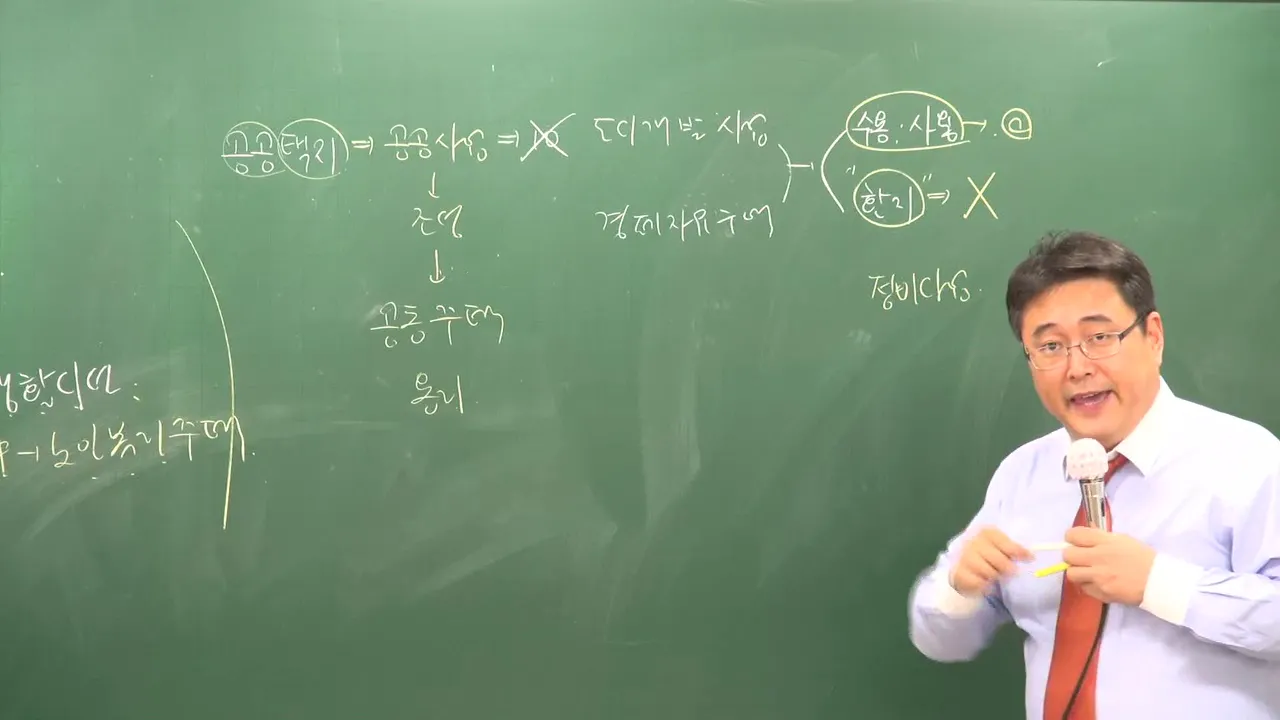 공공택지 ⇒ 공공사업 ⇒
↓
조성
↓
공동주택
용지
도시개발 사업
경제자유구역
수용·사용 →
"환지" ⇒ X
정비사업
행한다면
→ 노인복지주택